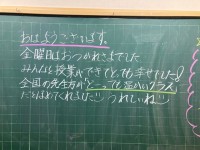 おはようございます。
金曜日はおつかれさまでした
みんなと授業ができてとても幸せでした♡
全国の先生方が"とっても温かいクラス"
だとほめてくれました… うれしいね